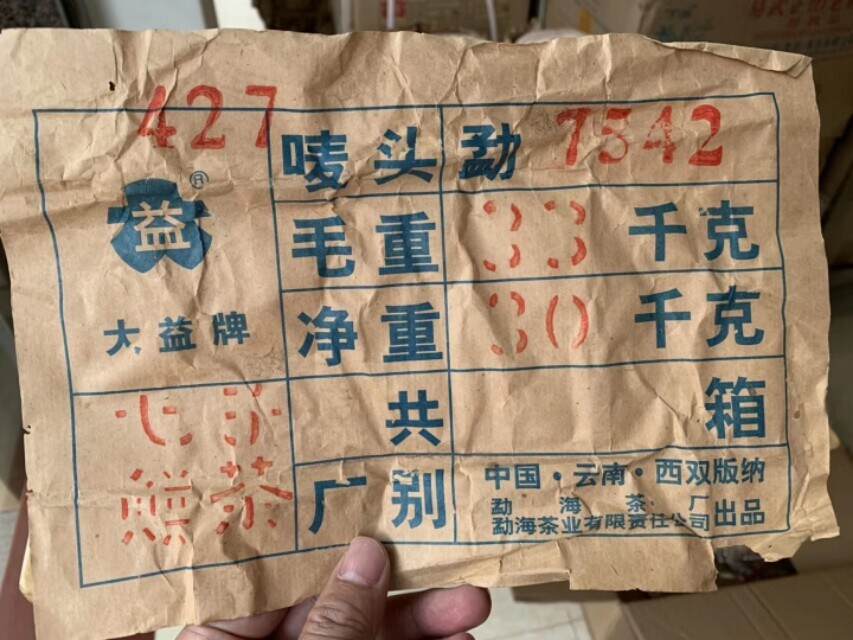 427
益®
大益牌
七子
饼茶
唛头 勐 7542
毛重 33 千克
净重 30 千克
共 箱
厂别 中国·云南·西双版纳
勐海茶厂
勐海茶业有限责任公司出品